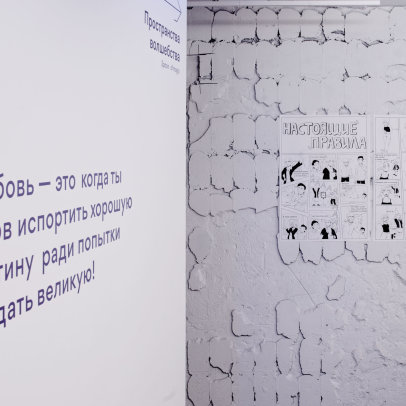 Пространства
волшебства
бовь — это когда ты
ов испортить хорошую
тину ради попытки
дать великую!
НАСТОЯЩИЕ
ПРАВИЛА